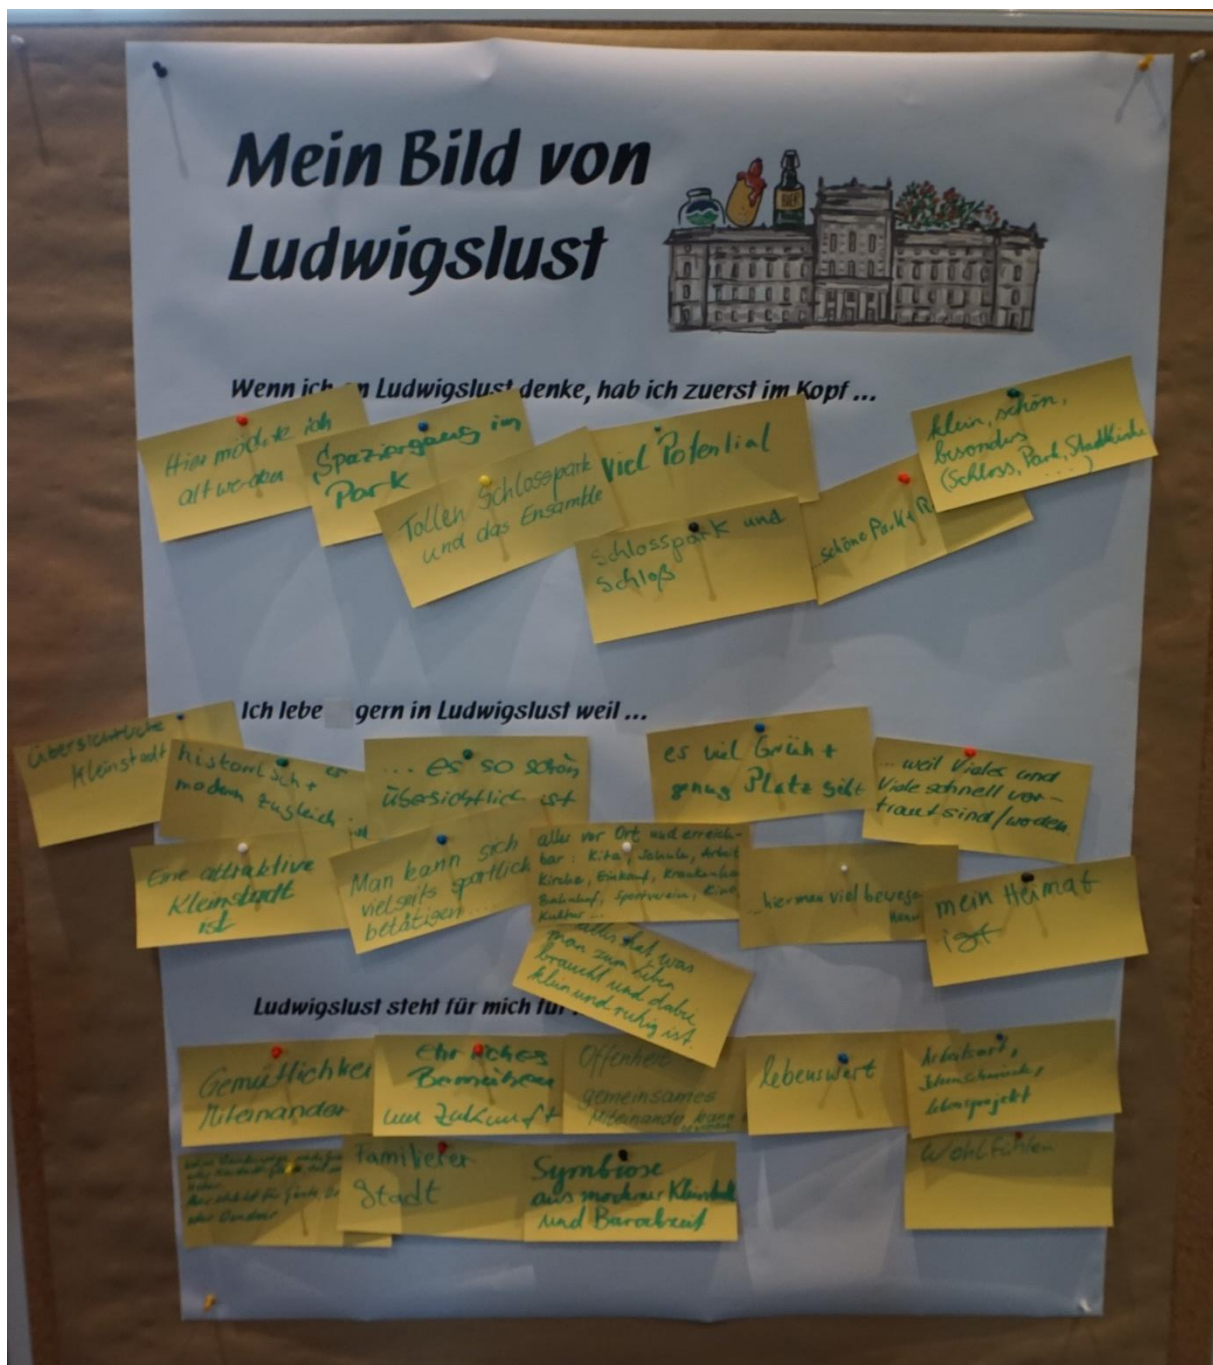 Mein Bild von
Ludwigslust
BIER
Wenn ich an Ludwigslust denke, hab ich zuerst im Kopf ...
Hier möchte ich
alt werden
Spaziergang im
Park
Tollen Schlosspark
und das Ensamble
Viel Potential
Schlosspark und
Schloß
...schöne Park
klein, schön,
besonders
(Schloss, Park, Stadtkirche
...)
Ich lebe gern in Ludwigslust weil ...
Übersichtliche
Kleinstadt
historisch + es
modern zugleich ist
... es so schön
übersichtlich ist
es viel Grün +
genug Platz gibt
... weil Vieles und
Viele schnell ver-
traut sind/werden.
Eine attraktive
Kleinstadt
ist
Man kann sich
vielseits sportlich
betätigen ...
alles vor Ort und erreich-
bar: Kita, Schule, Arbeit
Kirche, Einkauf, Krankenhaus
Bahnhof, Sportverein, Kino,
Kultur ...
...hier man viel
mein Heimat
ist
alles hat, was
man zum Leben
braucht und dabei
klein und ruhig ist.
Ludwigslust steht für mich für
Gemütlichkei
Miteinander
Ehrliches
Bemühen
um Zukunft
Offenheit
gemeinsames
Miteinander
lebenswert
Arbeitsort,
Lebensprojekt
Familierer
Stadt
Symbiose
aus moderner Kleinstadt
und Barockzeit
Wohlfühlen